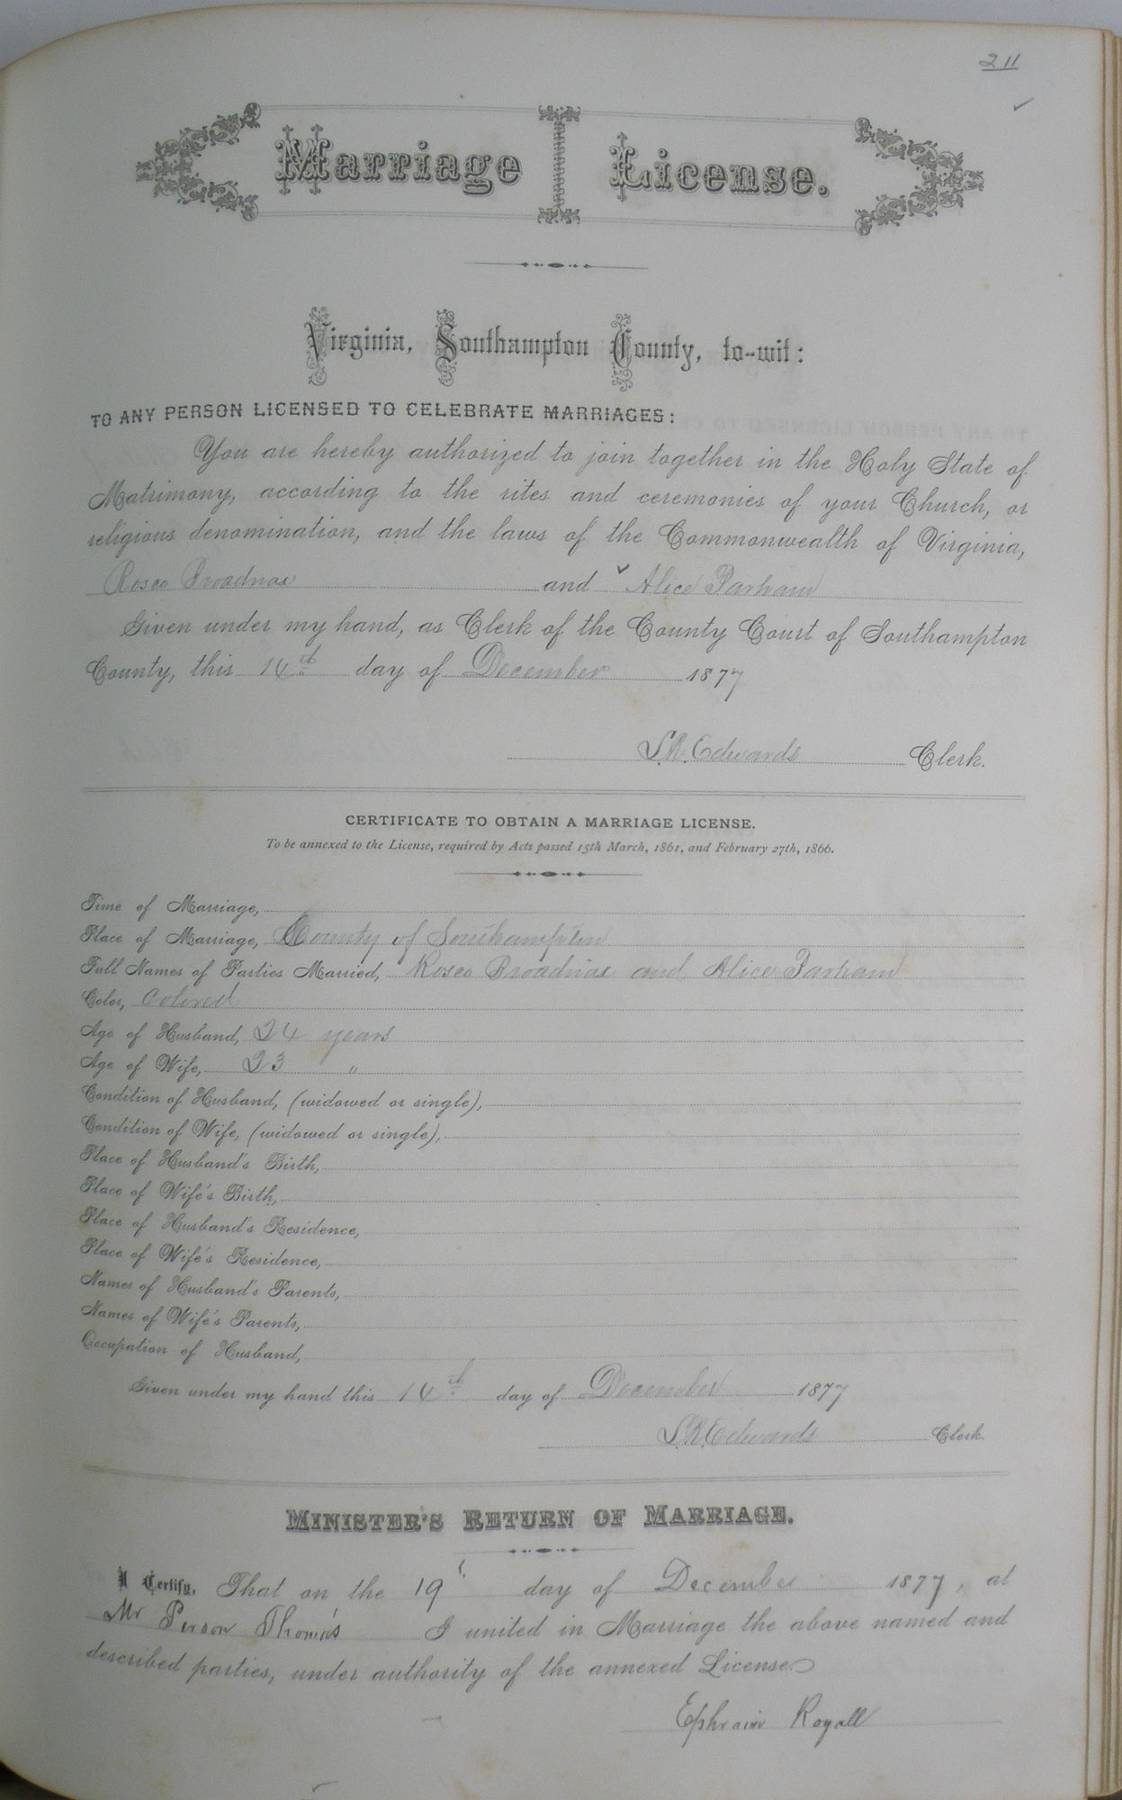 211
Marriage License.
Virginia, Southampton County, to-wit:
TO ANY PERSON LICENSED TO CELEBRATE MARRIAGES:
You are hereby authorized to join together in the Holy State of
Matrimony, according to the rites and ceremonies of your Church, or
religious denomination, and the laws of the Commonwealth of Virginia,
Rosco Broadnax and Alice Parham
Given under my hand, as Clerk of the County Court of Southampton
County, this 14th day of December 1877
L.R. Edwards Clerk.
CERTIFICATE TO OBTAIN A MARRIAGE LICENSE.
To be annexed to the License, required by Acts passed 15th March, 1861, and February 27th, 1866.
Time of Marriage,
Place of Marriage, County of Southampton
Full Names of Parties Married, Rosco Broadnax and Alice Parham
Color, Colored
Age of Husband, 24 years
Age of Wife, 23 "
Condition of Husband, (widowed or single),
Condition of Wife, (widowed or single),
Place of Husband's Birth,
Place of Wife's Birth,
Place of Husband's Residence,
Place of Wife's Residence,
Names of Husband's Parents,
Names of Wife's Parents,
Occupation of Husband,
Given under my hand this 14th day of December 1877
L.R. Edwards Clerk.
MINISTER'S RETURN OF MARRIAGE.
I Certify, That on the 19t day of December 1877, at
Mr Person Thomas I united in Marriage the above named and
described parties, under authority of the annexed License.
Ephraim Royall